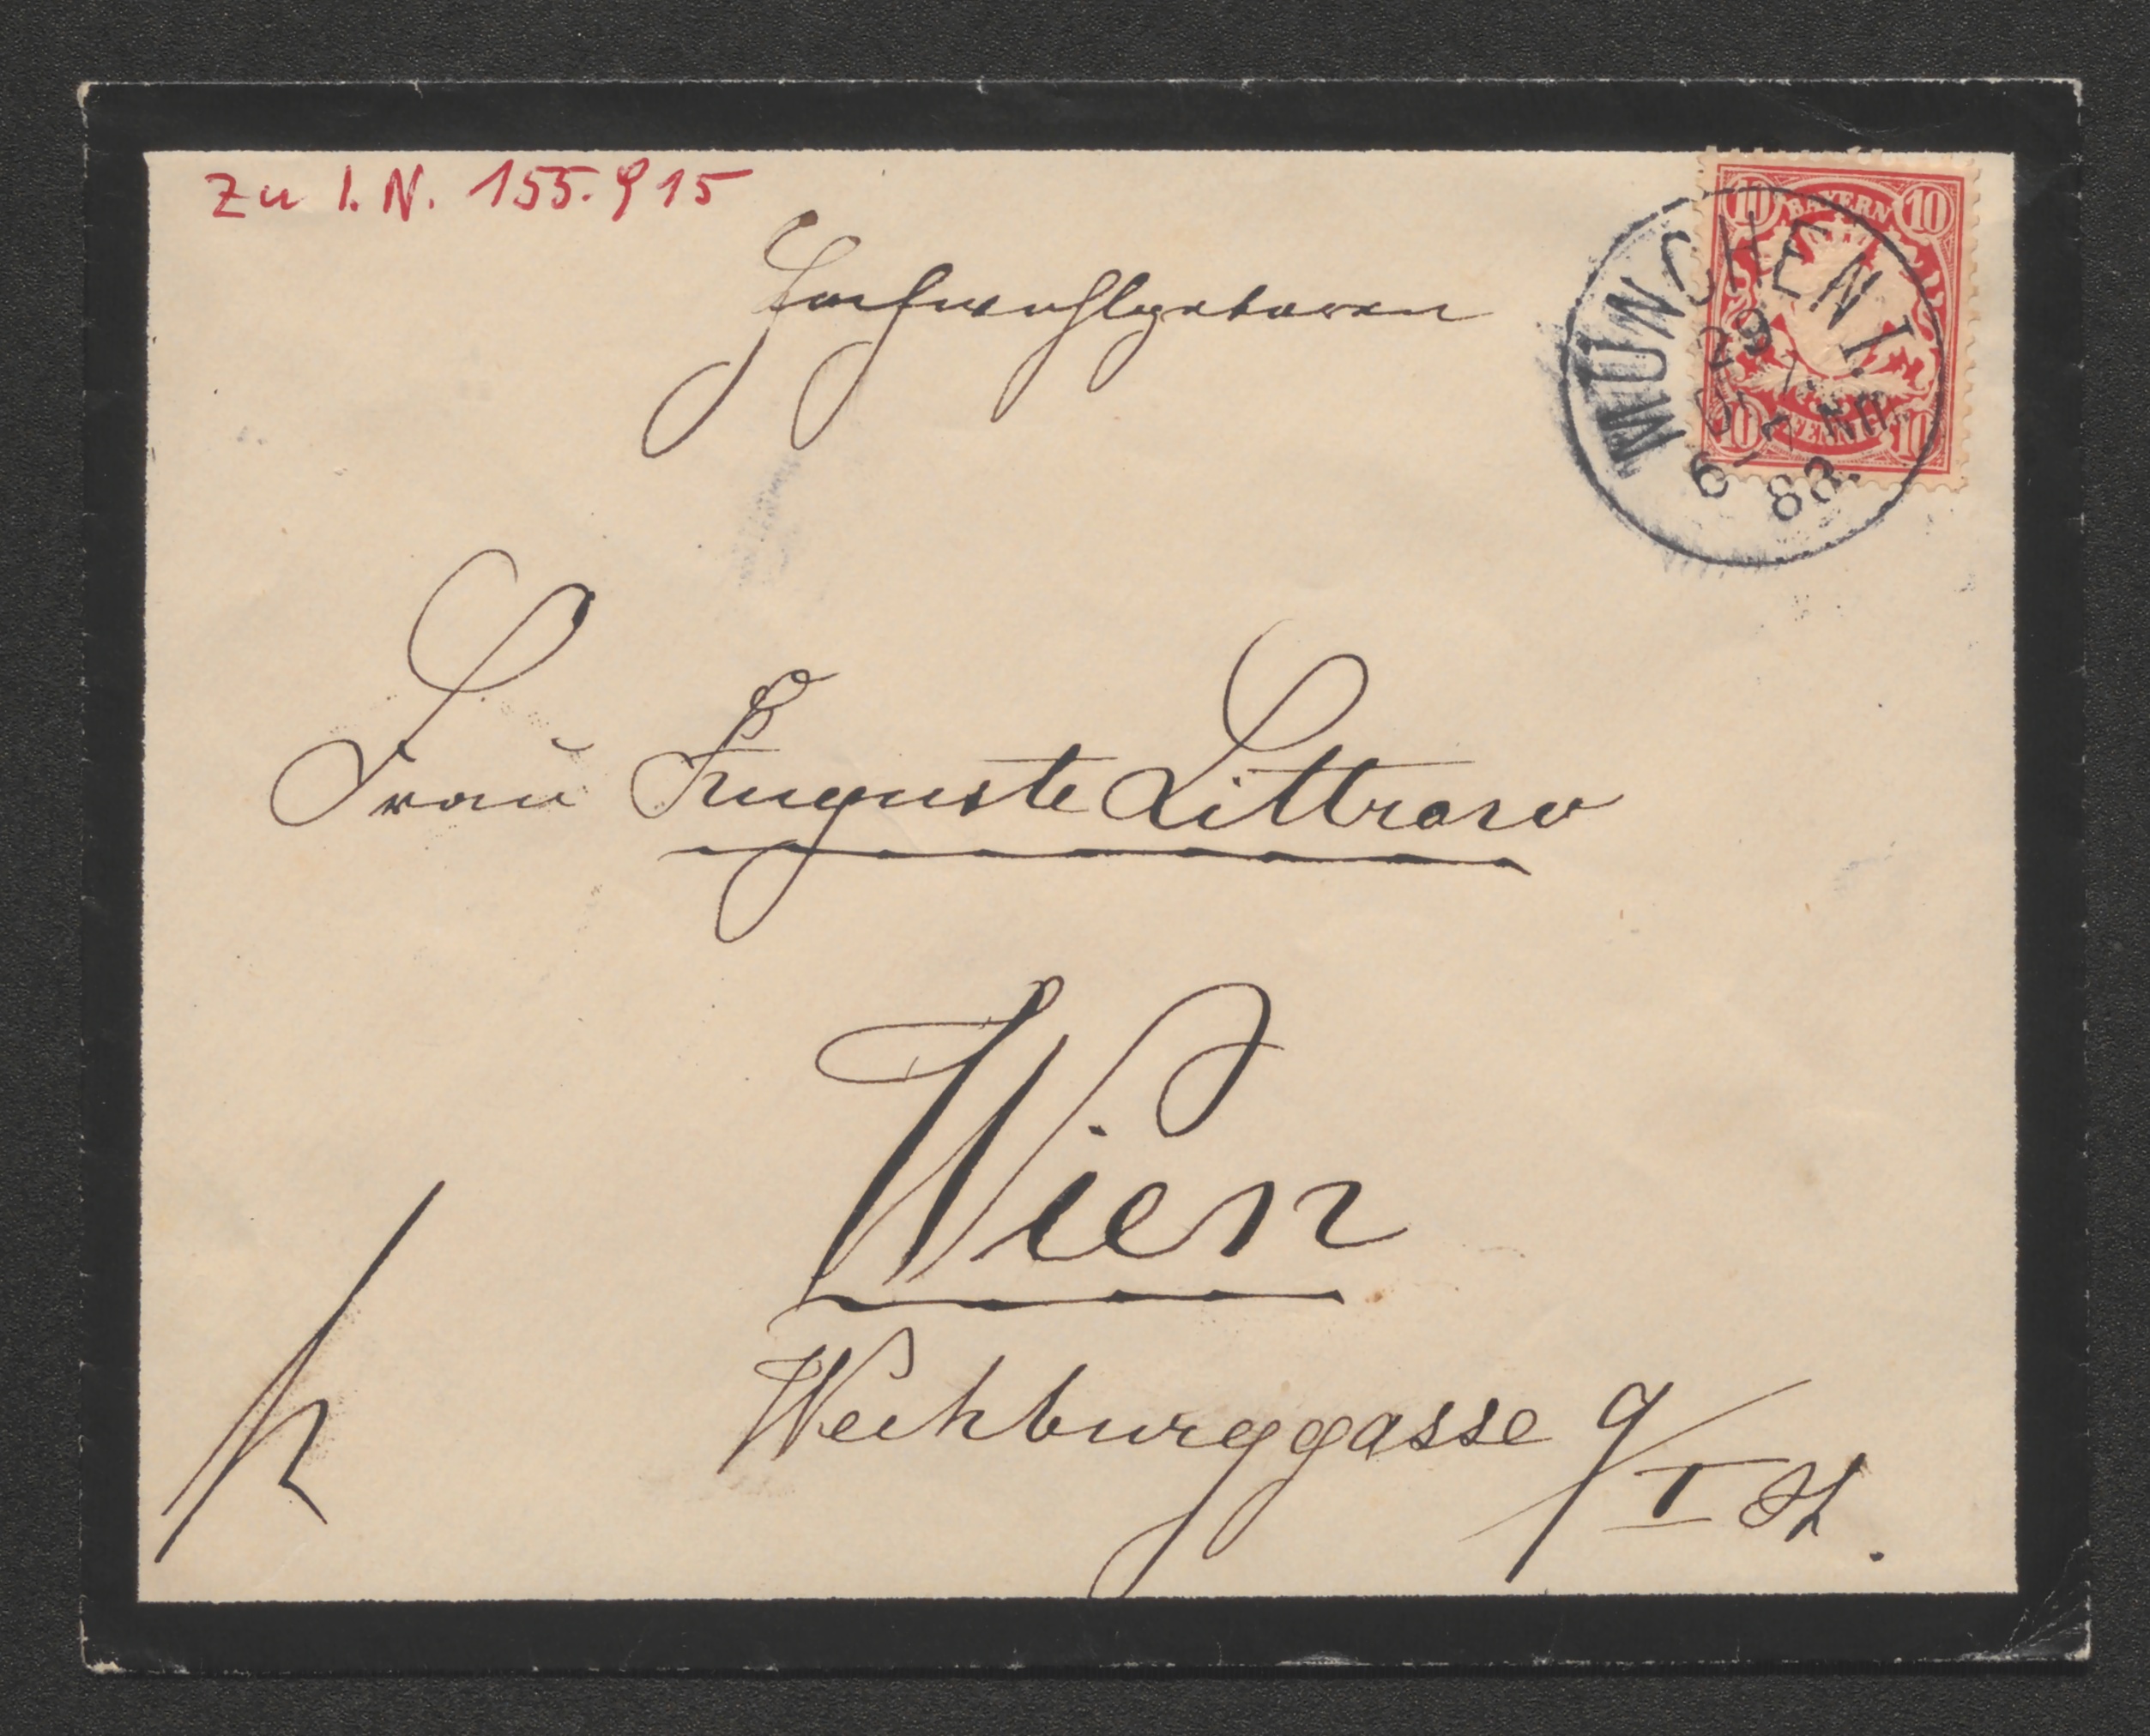 Zu I.N. 155.915
Hochwohlgeboren
BAYERN
10 10
MÜNCHEN I.
29
6- 88.
10 PFENNIG 10
Frau Auguste Littrow
Wien
Weihburggasse 9/I St.